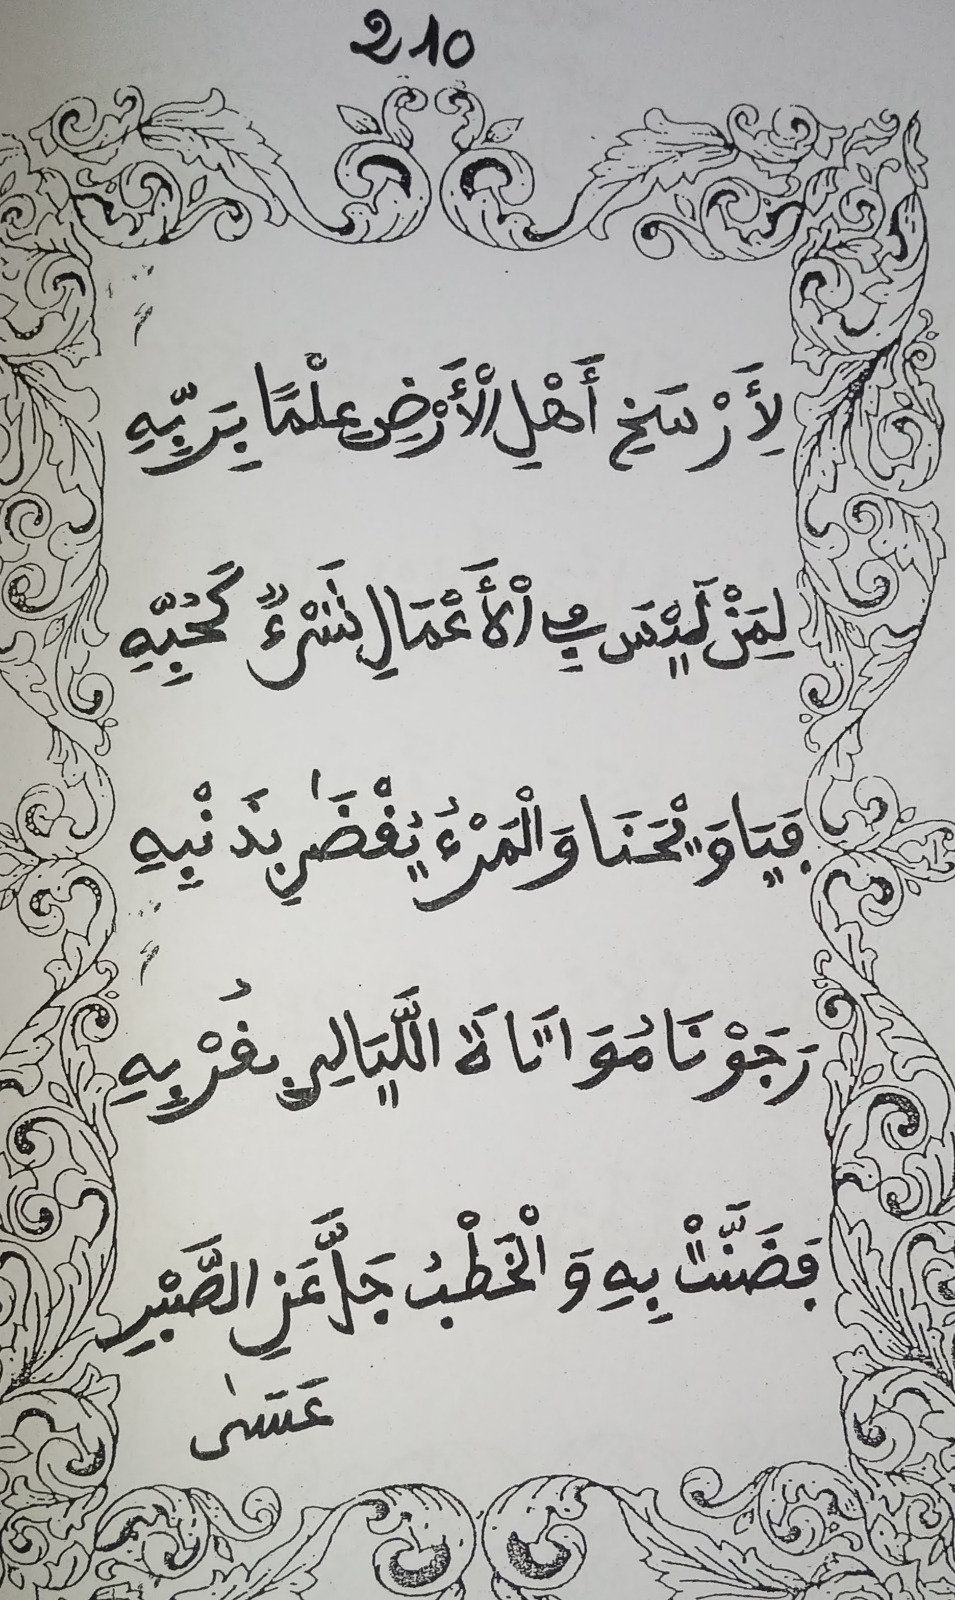 210
لِأَرْسَخِ أَهْلِ الْأَرْضِ عِلْمًا بِرَبِّهِ
لِمَنْ لَيْسَ فِي الْأَعْمَالِ شَرْءٌ كَحُبِّهِ
فَيَا وَيْحَنَا وَالْمَرْءُ يُقْضَىٰ بِذَنْبِهِ
رَجَوْنَا مُوَاتَاةَ اللَّيَالِي بِقُرْبِهِ
فَضَنَّتْ بِهِ وَالْخَطْبُ جَلَّ عَنِ الصَّبْرِ
عَسَىٰ